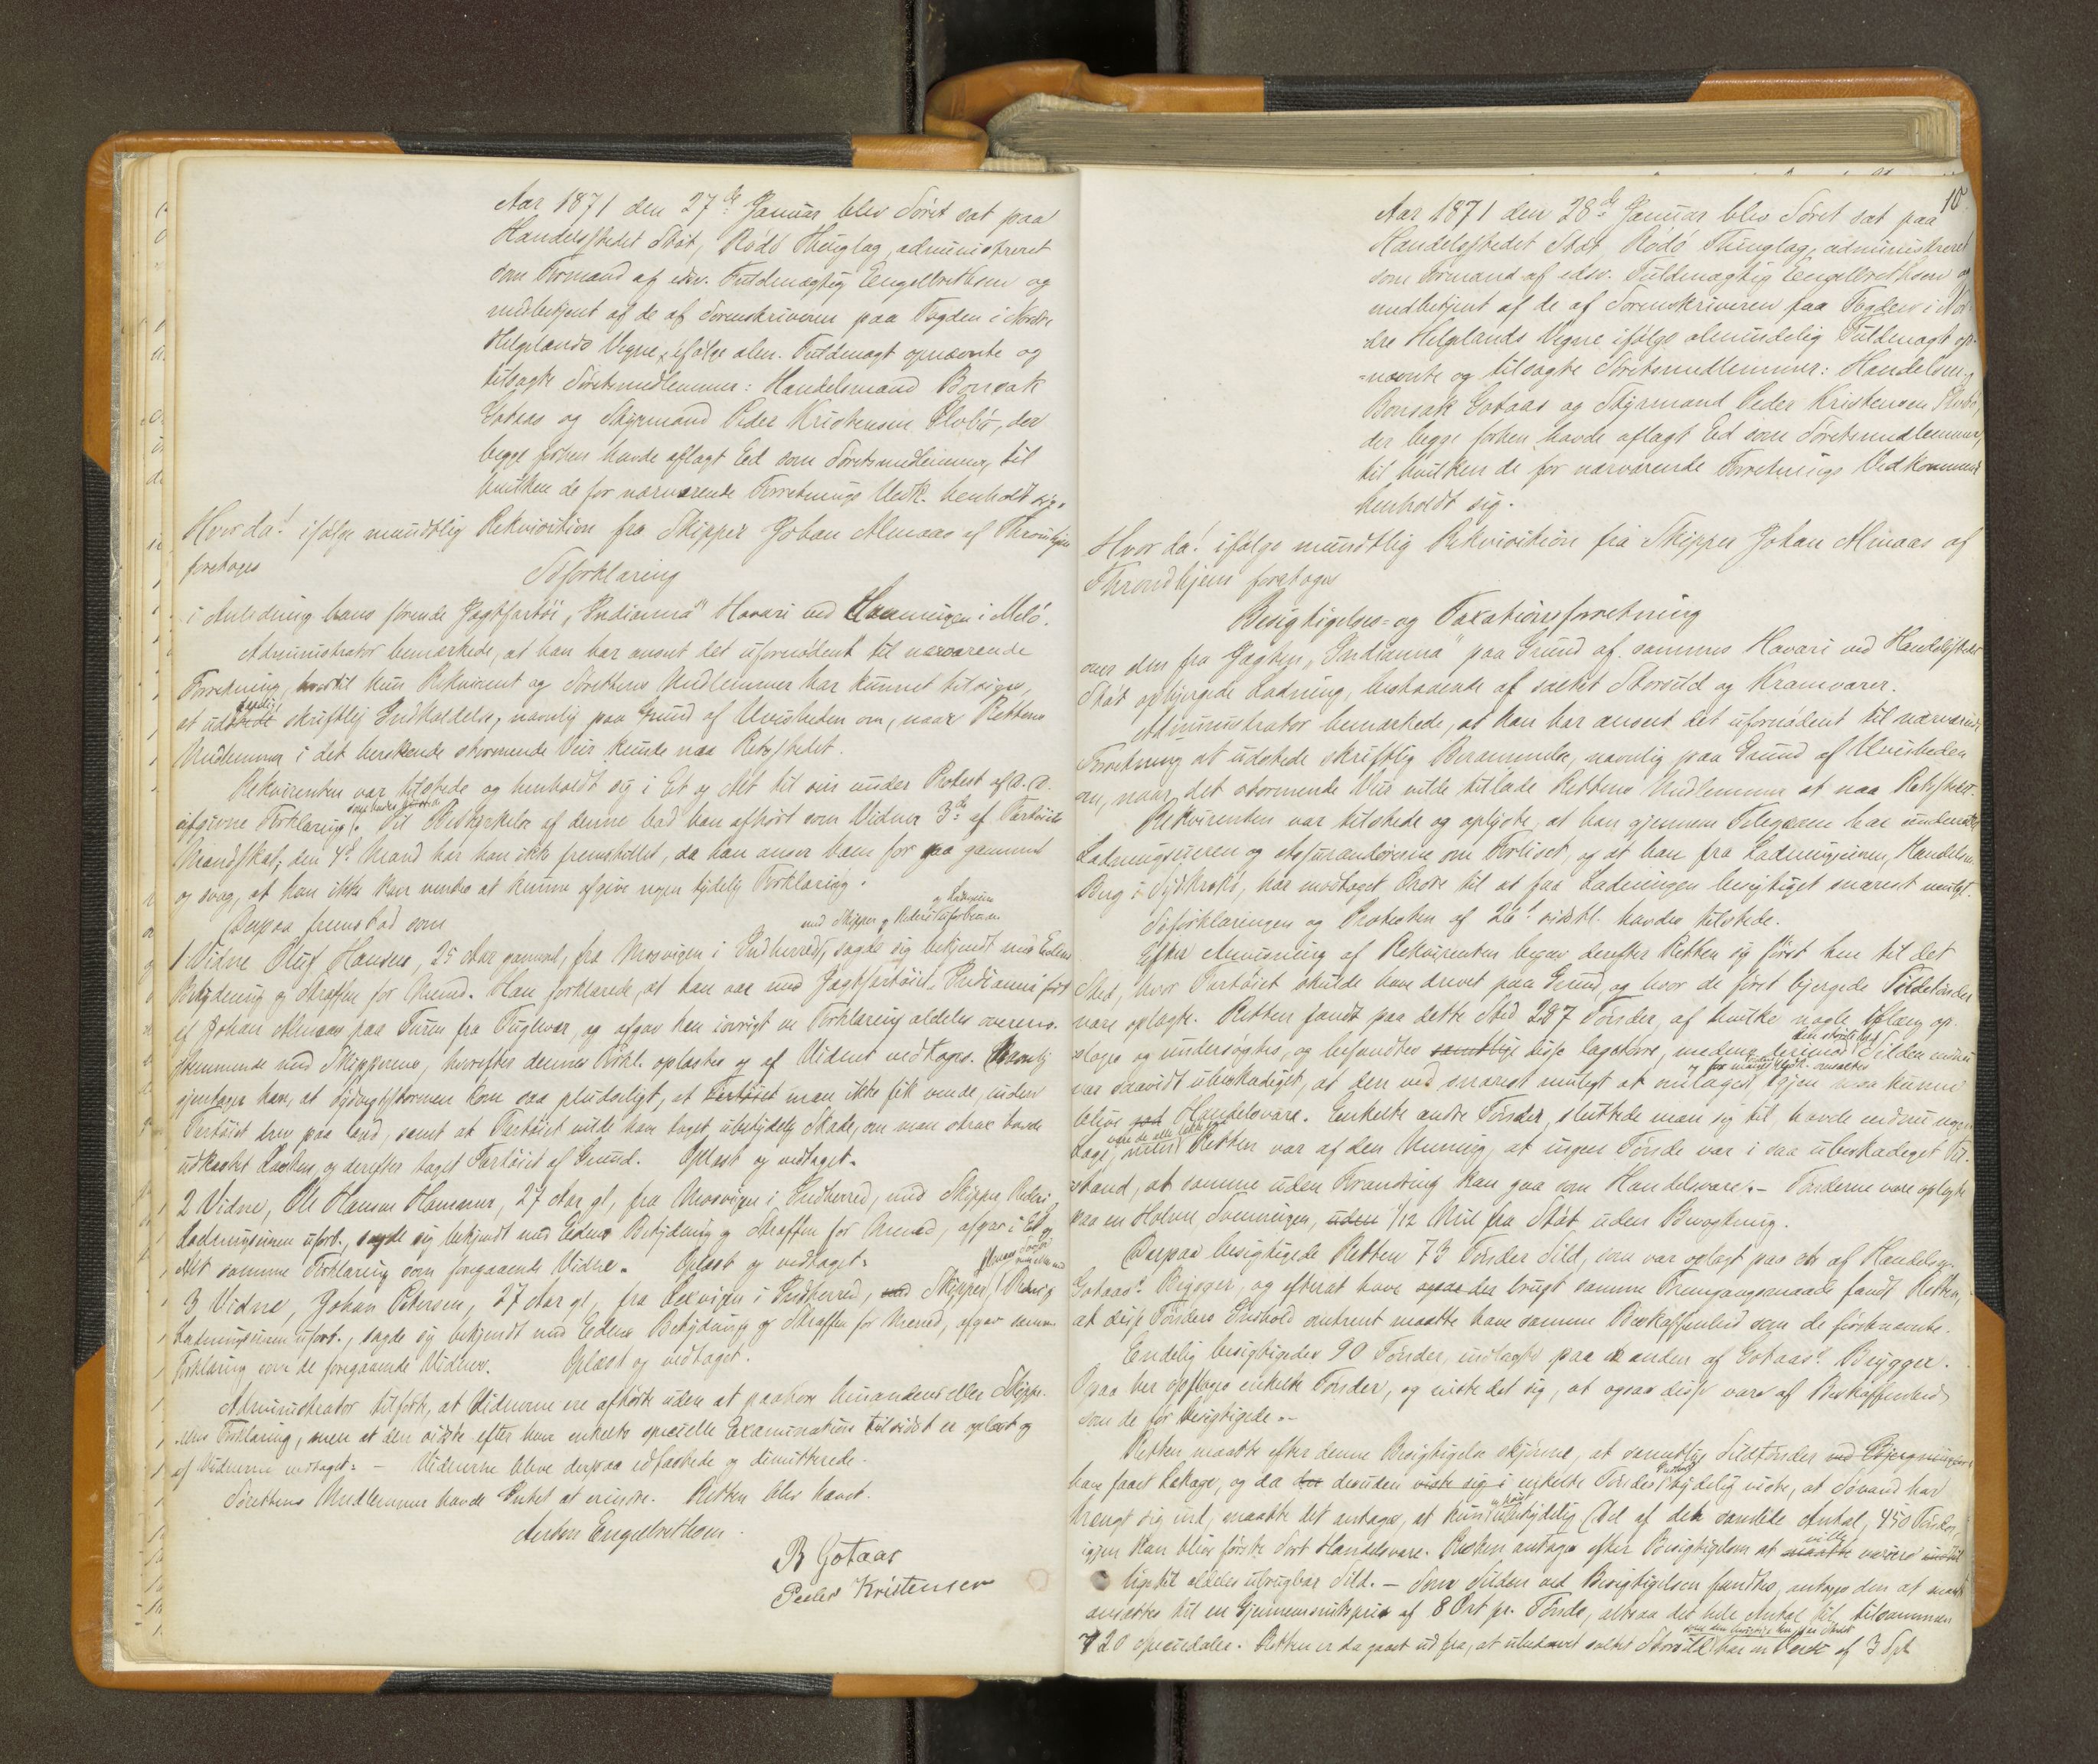 Aar 1871 den 27de Januar blev Söret sat paa
Handelsstedet Stöt, Rödö Thinglag, administreret
som Formand af edsv. Fuldmægtig Engelbrethsen og
medbetjent af de af Sorenskriveren paa Fogden i Nordre
Helgelands Vegne, ifölge alm. Fuldmagt opnævnte og
tilsagte Söretsmedlemmer: Handelsmand Bonsak
Gotaas og Styrmand Peder Kristensen, der
begge forhen havde aflagt Ed som Söretsmedlemmer, til
hvilken de for nærværende Forretnings Vedk. henholdt sig.
Hvor da! ifölge mundtlig Rekvisition fra Skipper Johan Almaas af Throndhjem
foretoges
Söforklaring
i Anledning hans förende Jagtfartöi, "Indianna" Havari ved i Melö.
Administrator bemærkede, at han har anseet det ufornödent til nærværende
Forretning, hvortil kun Rekvirent og Sörettens Medlemmer har kunnet tilsiges,
at udstede skriftlig Indkaldelse, navnlig paa Grund af Uvisheden om, naar Rettens
Medlemmer i det herskende stormende Veir kunde naa Retsstedet.
Rekvirenten var tilstede og henholdt sig i Et og Alt til sin under Protest af D. D.
afgivne Forklaring. Til Bestyrkelse af denne bad han afhört som Vidner 3de af Fartöiets
Mandskab, den 4de Mand har han ikke fremstillet, da han anser ham for saa gammel
og svag, at han ikke kan ventes at kunne afgive nogen tydelig Forklaring.
Derpaa fremstod som
med Skipper og Rederi
1 Vidne Oluf Hansen, 25 Aar gammel, fra Mosvigen i Indherred, sagde sig bekjendt med Edens
Betydning og Straffen for Mened. Han forklarede, at han var med Jagtfartöiet "Indianna" fört
af Johan Almaas paa Turen fra Fuglevær, og afgav han iövrigt en Forklaring aldeles overens-
stemmende med Skipperens, hvorefter dennes Forkl. oplæstes og af Vidnet vedtoges. Navnlig
gjentager han, at SydvestStormen kom saa pludseligt, at Fartöiet man ikke fik vende, inden
Fartöiet drev paa Land, samt at Fartöiet vilde have taget ubetydelig Skade, om man strax havde
udkastet Lasten, og derefter taget Fartöiet af Grund. Oplæst og vedtaget.
2 Vidne, Ole Hansen, 27 Aar gl, fra Mosvigen i Indherred, med Skipper Rederi og
Ladningseieren ubesl., sagde sig bekjendt med Edens Betydning og Straffen for Mened, afgav i Et og
Alt samme Forklaring som foregaaende Vidne. Oplæst og vedtaget.
3 Vidne, Johan Petersen, 27 Aar gl, fra Lexvigen i Indherred, med Skipper, Rederi og
Ladningseieren ubesl., sagde sig bekjendt med Edens Betydning og Straffen for Mened, afgav samme
Forklaring som de foregaaende Vidner. Oplæst og vedtaget.
Administrator tilförte, at Vidnerne ere afhörte uden at paahöre hinandens eller Skippe-
rens Forklaring, men at den sidste efter hver enkelts specielle Examination tilsidst er oplæst og
af Vidnerne vedtaget. - Vidnerne bleve derpaa edfæstede og dimitterede.
Sörettens Medlemmer havde Intet at erindre. Retten blev hævet.
Anton Engelbrethsen.
B Gotaas
Peder Kristensen
10
Aar 1871 den 28de Januar blev Söret sat paa
Handelsstedet Stöt, Rödö Thinglag, administreret
som Formand af edsv. Fuldmægtig Engelbrethsen og
medbetjent af de af Sorenskriveren paa Fogden i Nor-
dre Helgelands Vegne ifölge almindelig Fuldmagt op-
nævnte og tilsagte Söretsmedlemmer: Handelsm.
Bonsak Gotaas og Styrmand Peder Kristensen
der begge forhen havde aflagt Ed som Söretsmedlemmer,
til hvilken de for nærværende Forretnings Vedkommende
henholdt sig.
Hvor da! ifölge mundtlig Rekvisition fra Skipper Johan Almaas af
Throndhjem foretoges
Besigtigelses- og Taxationsforretning
over den fra Jagten "Indianna" paa Grund af sammes Havari ved Handelsstedet
Stöt opbjergede Ladning, bestaaende af saltet Storsild og Kramvarer.
Administrator bemærkede, at han har anseet det ufornödent til nærværende
Forretning at udstede skriftlig Berammelse, navnlig paa Grund af Uvisheden
om, naar det stormende Veir vilde tillade Rettens Medlemmer at naa Retsstedet.
Rekvirenten var tilstede og oplyste, at han gjennem Telegram har underrettet
Ladningseieren og Assurandörerne om Forliset, og at han fra Ladningseieren, Handelsm.
Berg i, har modtaget Ordre til at faa Ladningen besigtiget snarest muligt.
Söforklaringen og Protesten af 26de sidstl. havdes tilstede.
Efter Anvisning af Rekvirenten begav derefter Retten sig först hen til det
Sted, hvor Fartöiet skulde have drevet paa Grund, og hvor de först bjergede Sildetönder
vare oplagte. Retten fandt paa dette Sted 287 Tönder, af hvilke nogle op-
sloges og undersögtes, og befandtes samtlige disse lagetomme, medens Silden
var saavidt ubeskadiget, at den ved snarest muligt at omlages igjen kunne
blive god Handelsvare. Enkelte andre Tönder, sluttede man sig til, havde endnu nogen
Lage, Retten var af den Mening, at ingen Tönde var i saa ubeskadiget Til-
stand, at samme uden Forandring kan gaa som Handelsvare. - Tönderne vare oplagte
paa en Holme Svenningen, uden 1/12 Mil fra Stöt uden Bevogtning.
Derpaa besigtigede Retten 73 Tönder Sild, som var oplagt paa en af Handelsm.
Gotaas' Brygger, og efterat have ogsaa der brugt samme Fremgangsmaade fandt Retten,
at disse Tönders Indhold omtrent maatte have samme Beskaffenhed som de förstnævnte.
Endelig besigtigedes 90 Tönder, indlagte paa en anden af Gotaas' Brygger.
Ogsaa her opsloges enkelte Tönder, og viste det sig, at ogsaa disse vare af Beskaffenhed
som de för besigtigede. -
Retten maatte efter denne Besigtigelse skjönne, at samtlige Sildetönder ved Bjergningen
have faaet Lekage, og da det desuden viste sig i enkelte Tönder tydelig viste, at Sövand har
trængt sig ind, maatte det antages, at kun ubetydelig Del af det samlede Antal, 450 Tönder,
igjen kan blive förste Sort Handelsvare. Retten antager efter Besigtigelsen at maatte variere
lige til aldeles ubrugbar Sild. - Som Silden ved Besigtigelsen fandtes, antages den at
ansættes til en Gjennemsnitspris af 8 Ort pr. Tönde, altsaa det hele Antal til tilsammen
720 Speciedaler. Retten er da gaaet ud fra, at ubedærvet saltet Storsild har en Værdi af 3 Spd